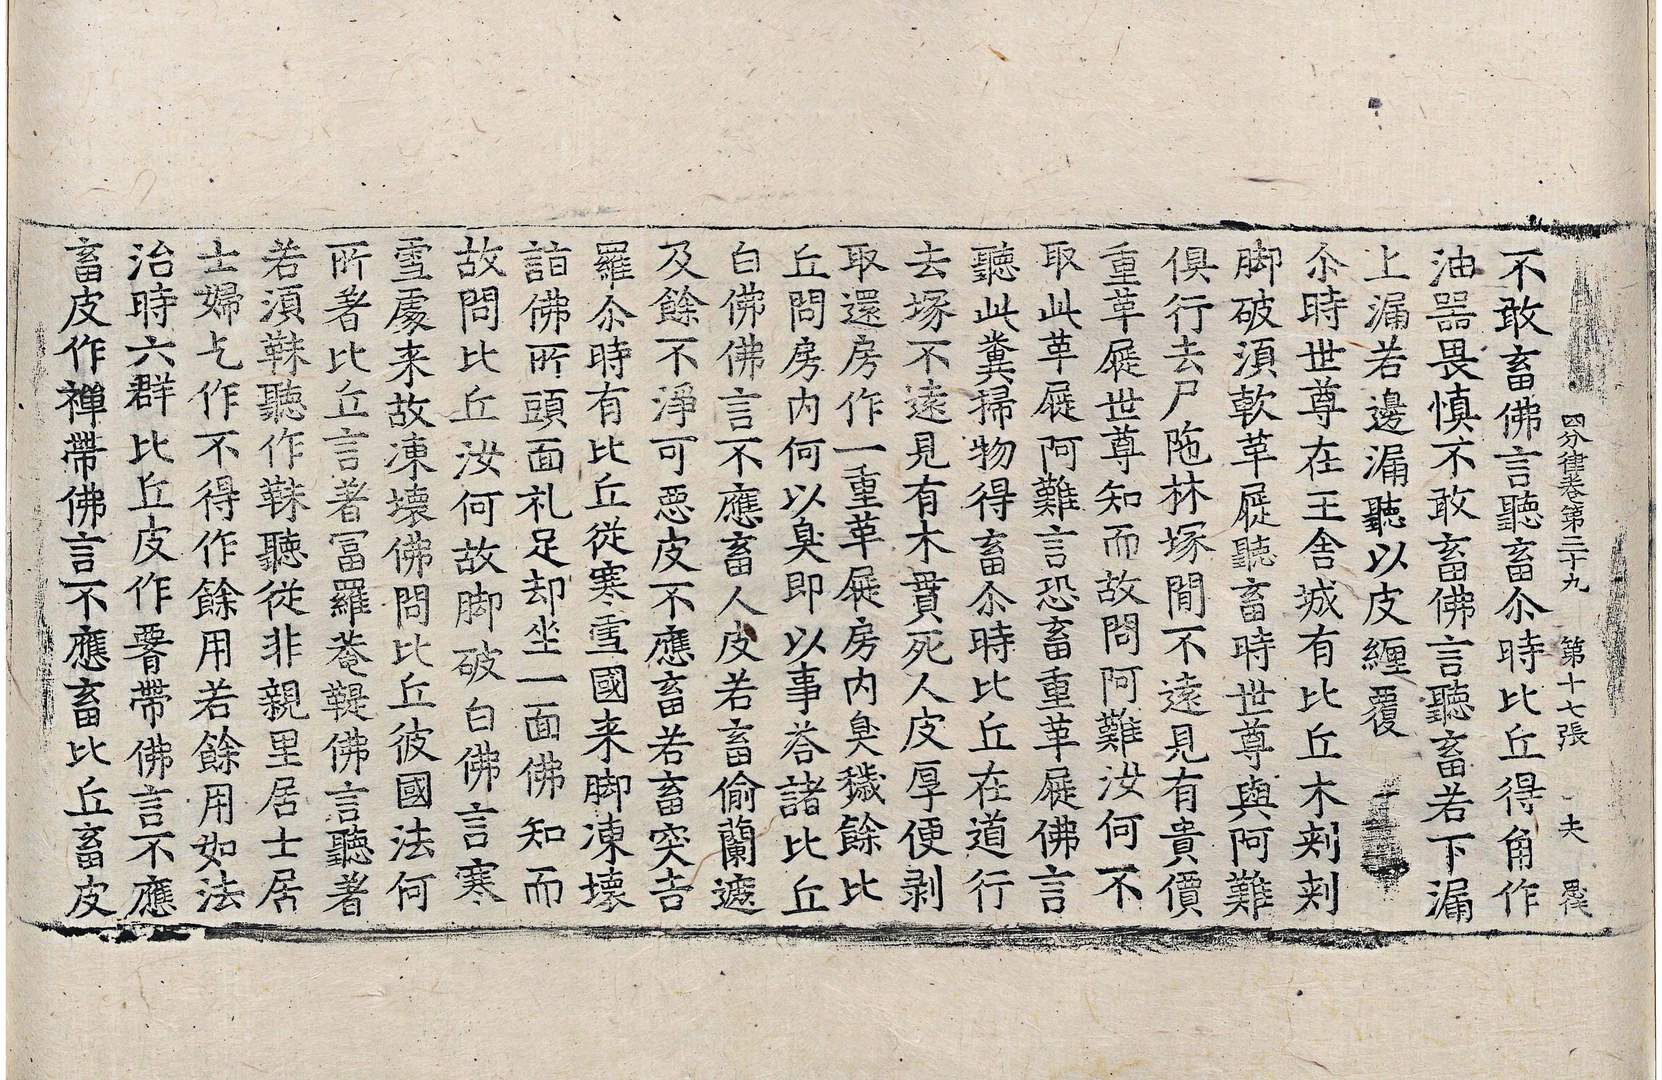 四分律卷第三十九 第十七張 夫
不敢畜佛言聽畜尒時比丘得角作
油器畏慎不敢畜佛言聽畜若下漏
上漏若邊漏聽以皮纏覆
尒時世尊在王舍城有比丘木刾刾
脚破湏軟革屣聽畜時世尊與阿難
俱行去尸陁林塚間不遠見有貴價
重革屣世尊知而故問阿難汝何不
取此革屣阿難言恐畜重革屣佛言
聽此糞掃物得畜尒時比丘在道行
去塚不遠見有木貫死人皮厚便剥
取還房作一重革屣房内臭穢餘比
丘問房内何以臭即以事荅諸比丘
白佛佛言不應畜人皮若畜偷蘭遮
及餘不淨可惡皮不應畜若畜突吉
羅尒時有比丘從寒雪國来脚凍壞
詣佛所頭面礼足却坐一面佛知而
故問比丘汝何故脚破白佛言寒
雪處来故凍壞佛問比丘彼國法何
所著比丘言著冨羅菴鞮佛言聽著
若湏靺聽作靺聽從非親里居士居
士婦乞作不得作餘用若餘用如法
治時六群比丘皮作䈥帶佛言不應
畜皮作禪帶佛言不應畜比丘畜皮